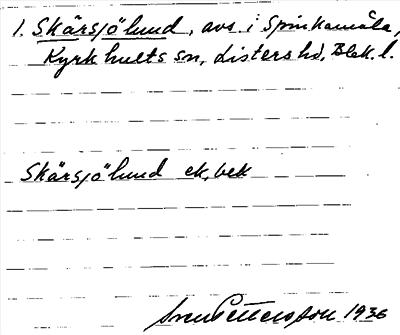 1. Skärsjölund, avs. i Spinkamåla,
Kyrkhults sn, Listers hd, Blek. l.
Skärsjölund ek, bek
Sven Pettersson 1936